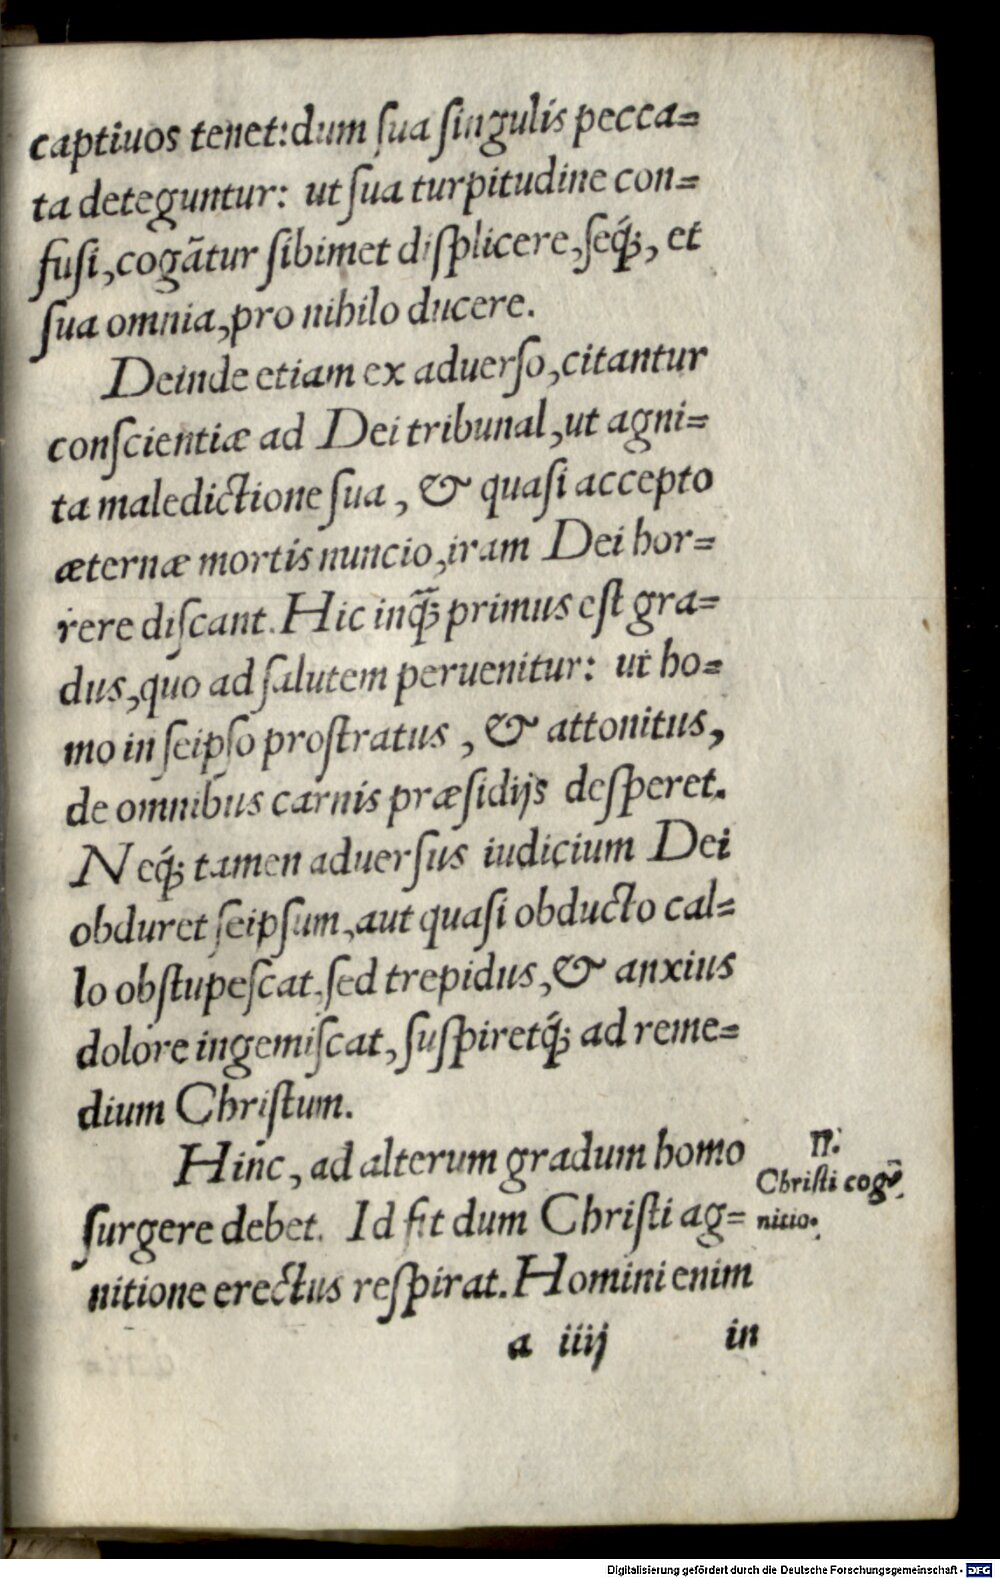 captiuos tenet: dum ſua ſingulis pecca=
ta deteguntur: ut ſua turpitudine con=
fuſi, cogãtur ſibimet diſplicere, ſeq́;, et
ſua omnia, pro nihilo ducere.
Deinde etiam ex aduerſo, citantur
conſcientiæ ad Dei tribunal, ut agni=
ta maledictione ſua, & quaſi accepto
æternæ mortis nuncio, iram Dei hor=
rere diſcant. Hic inq̃; primus eſt gra=
dus, quo ad ſalutem peruenitur: ut ho=
mo in ſeipſo proſtratus, & attonitus,
de omnibus carnis præſidijs deſperet.
Neq́; tamen aduerſus iudicium Dei
obduret ſeipſum, aut quaſi obducto cal=
lo obſtupeſcat, ſed trepidus, & anxius
dolore ingemiſcat, ſuſpiretq́; ad reme=
dium Chriſtum.
Hinc, ad alterum gradum homo
II.
Chriſti cog=
ſurgere debet. Id fit dum Chriſti ag=
nitio.
nitione erectus reſpirat. Homini enim
a iiij in
Digitalisierung gefördert durch die Deutsche Forschungsgemeinschaft - DFG